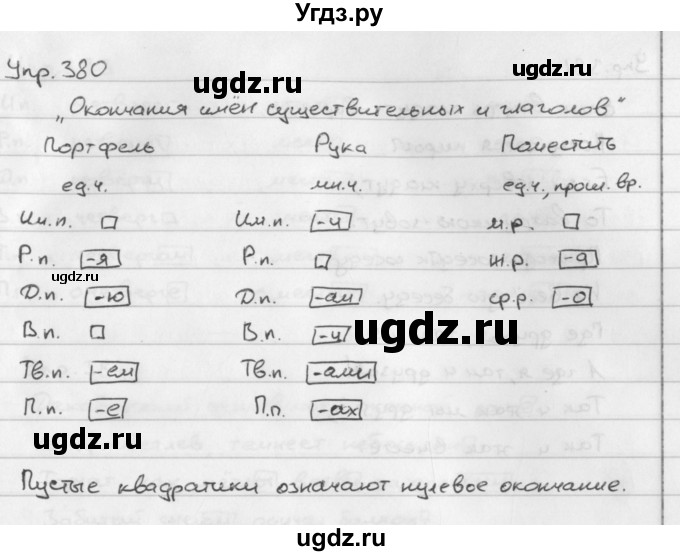 Угдз.ру
Упр. 380
ugdz.ru
„Окончания имён существительных и глаголов"
Портфель Рука Поместить
ед.ч. мн.ч. ед.ч., прош. вр.
Им.п. □ Им.п. -и м.р. □
Р.п. -я Р.п. □ ж.р. -а
ugdz.ru
Д.п. -ю Д.п. -ам ср.р. -о
В.п. □ В.п. -и
ugdz.ru
Тв.п. -ем Тв.п. -ами
П.п. -е П.п. -ах
ugdz.ru
Пустые квадратики означают нулевое окончание.
ugdz.ru